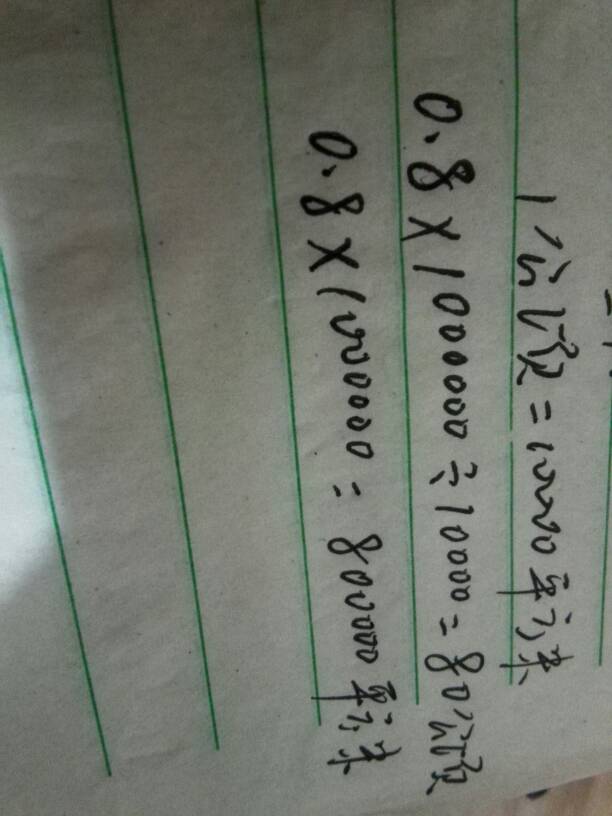 1公顷=10000平方米
0.8×1000000÷10000=80公顷
0.8×1000000=800000平方米